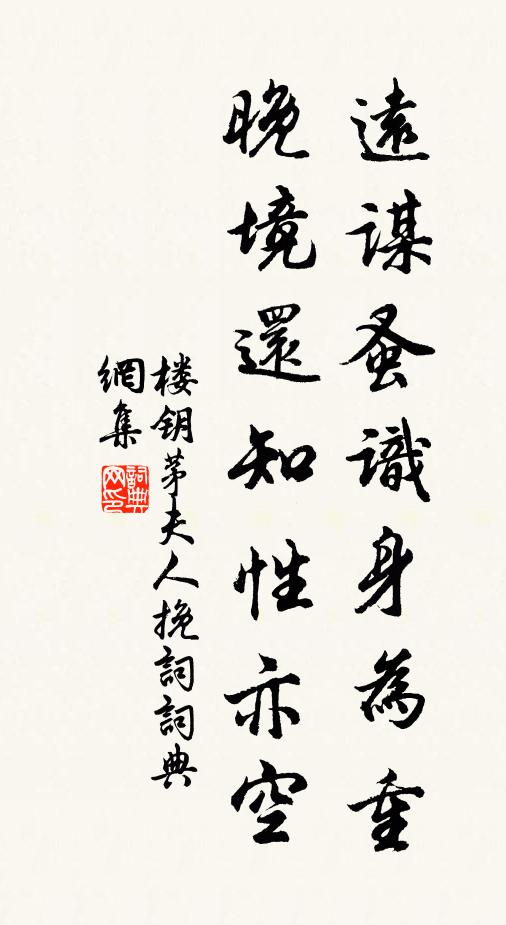 遠謀蚤識身為重
晚境還知性亦空
楼钥茅夫人挽詞詞典
網集
詞典
网印